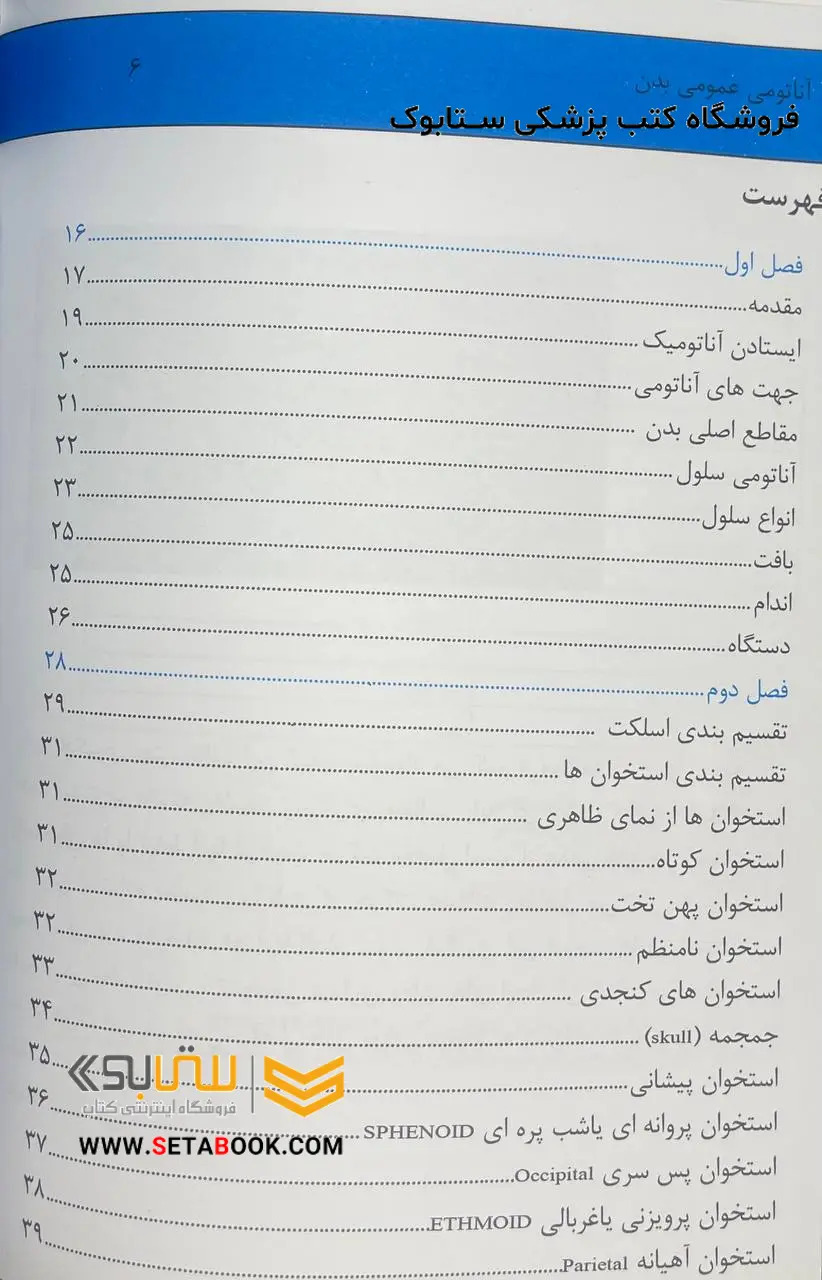 آناتومی عمومی بدن ۶
فروشگاه کتب پزشکی ستابوک
فهرست
فصل اول....................۱۶
مقدمه....................۱۷
ایستادن آناتومیک....................۱۹
جهت های آناتومی....................۲۰
مقاطع اصلی بدن ....................۲۱
آناتومی سلول....................۲۲
انواع سلول....................۲۳
بافت....................۲۵
اندام....................۲۵
دستگاه....................۲۶
فصل دوم....................۲۸
تقسیم بندی اسلکت ....................۲۹
تقسیم بندی استخوان ها ....................۳۱
استخوان ها از نمای ظاهری ....................۳۱
استخوان کوتاه....................۳۱
استخوان پهن تخت....................۳۲
استخوان نامنظم....................۳۲
استخوان های کنجدی ....................۳۳
جمجمه (skull) ....................۳۴
استخوان پیشانی....................۳۵
استخوان پروانه ای یاشب پره ای SPHENOID....................۳۶
استخوان پس سری Occipital....................۳۷
استخوان پرویزنی یاغربالی ETHMOID....................۳۸
استخوان آهیانه Parietal....................۳۹
ستابوک
فروشگاه اینترنتی کتاب
WWW.SETABOOK.COM